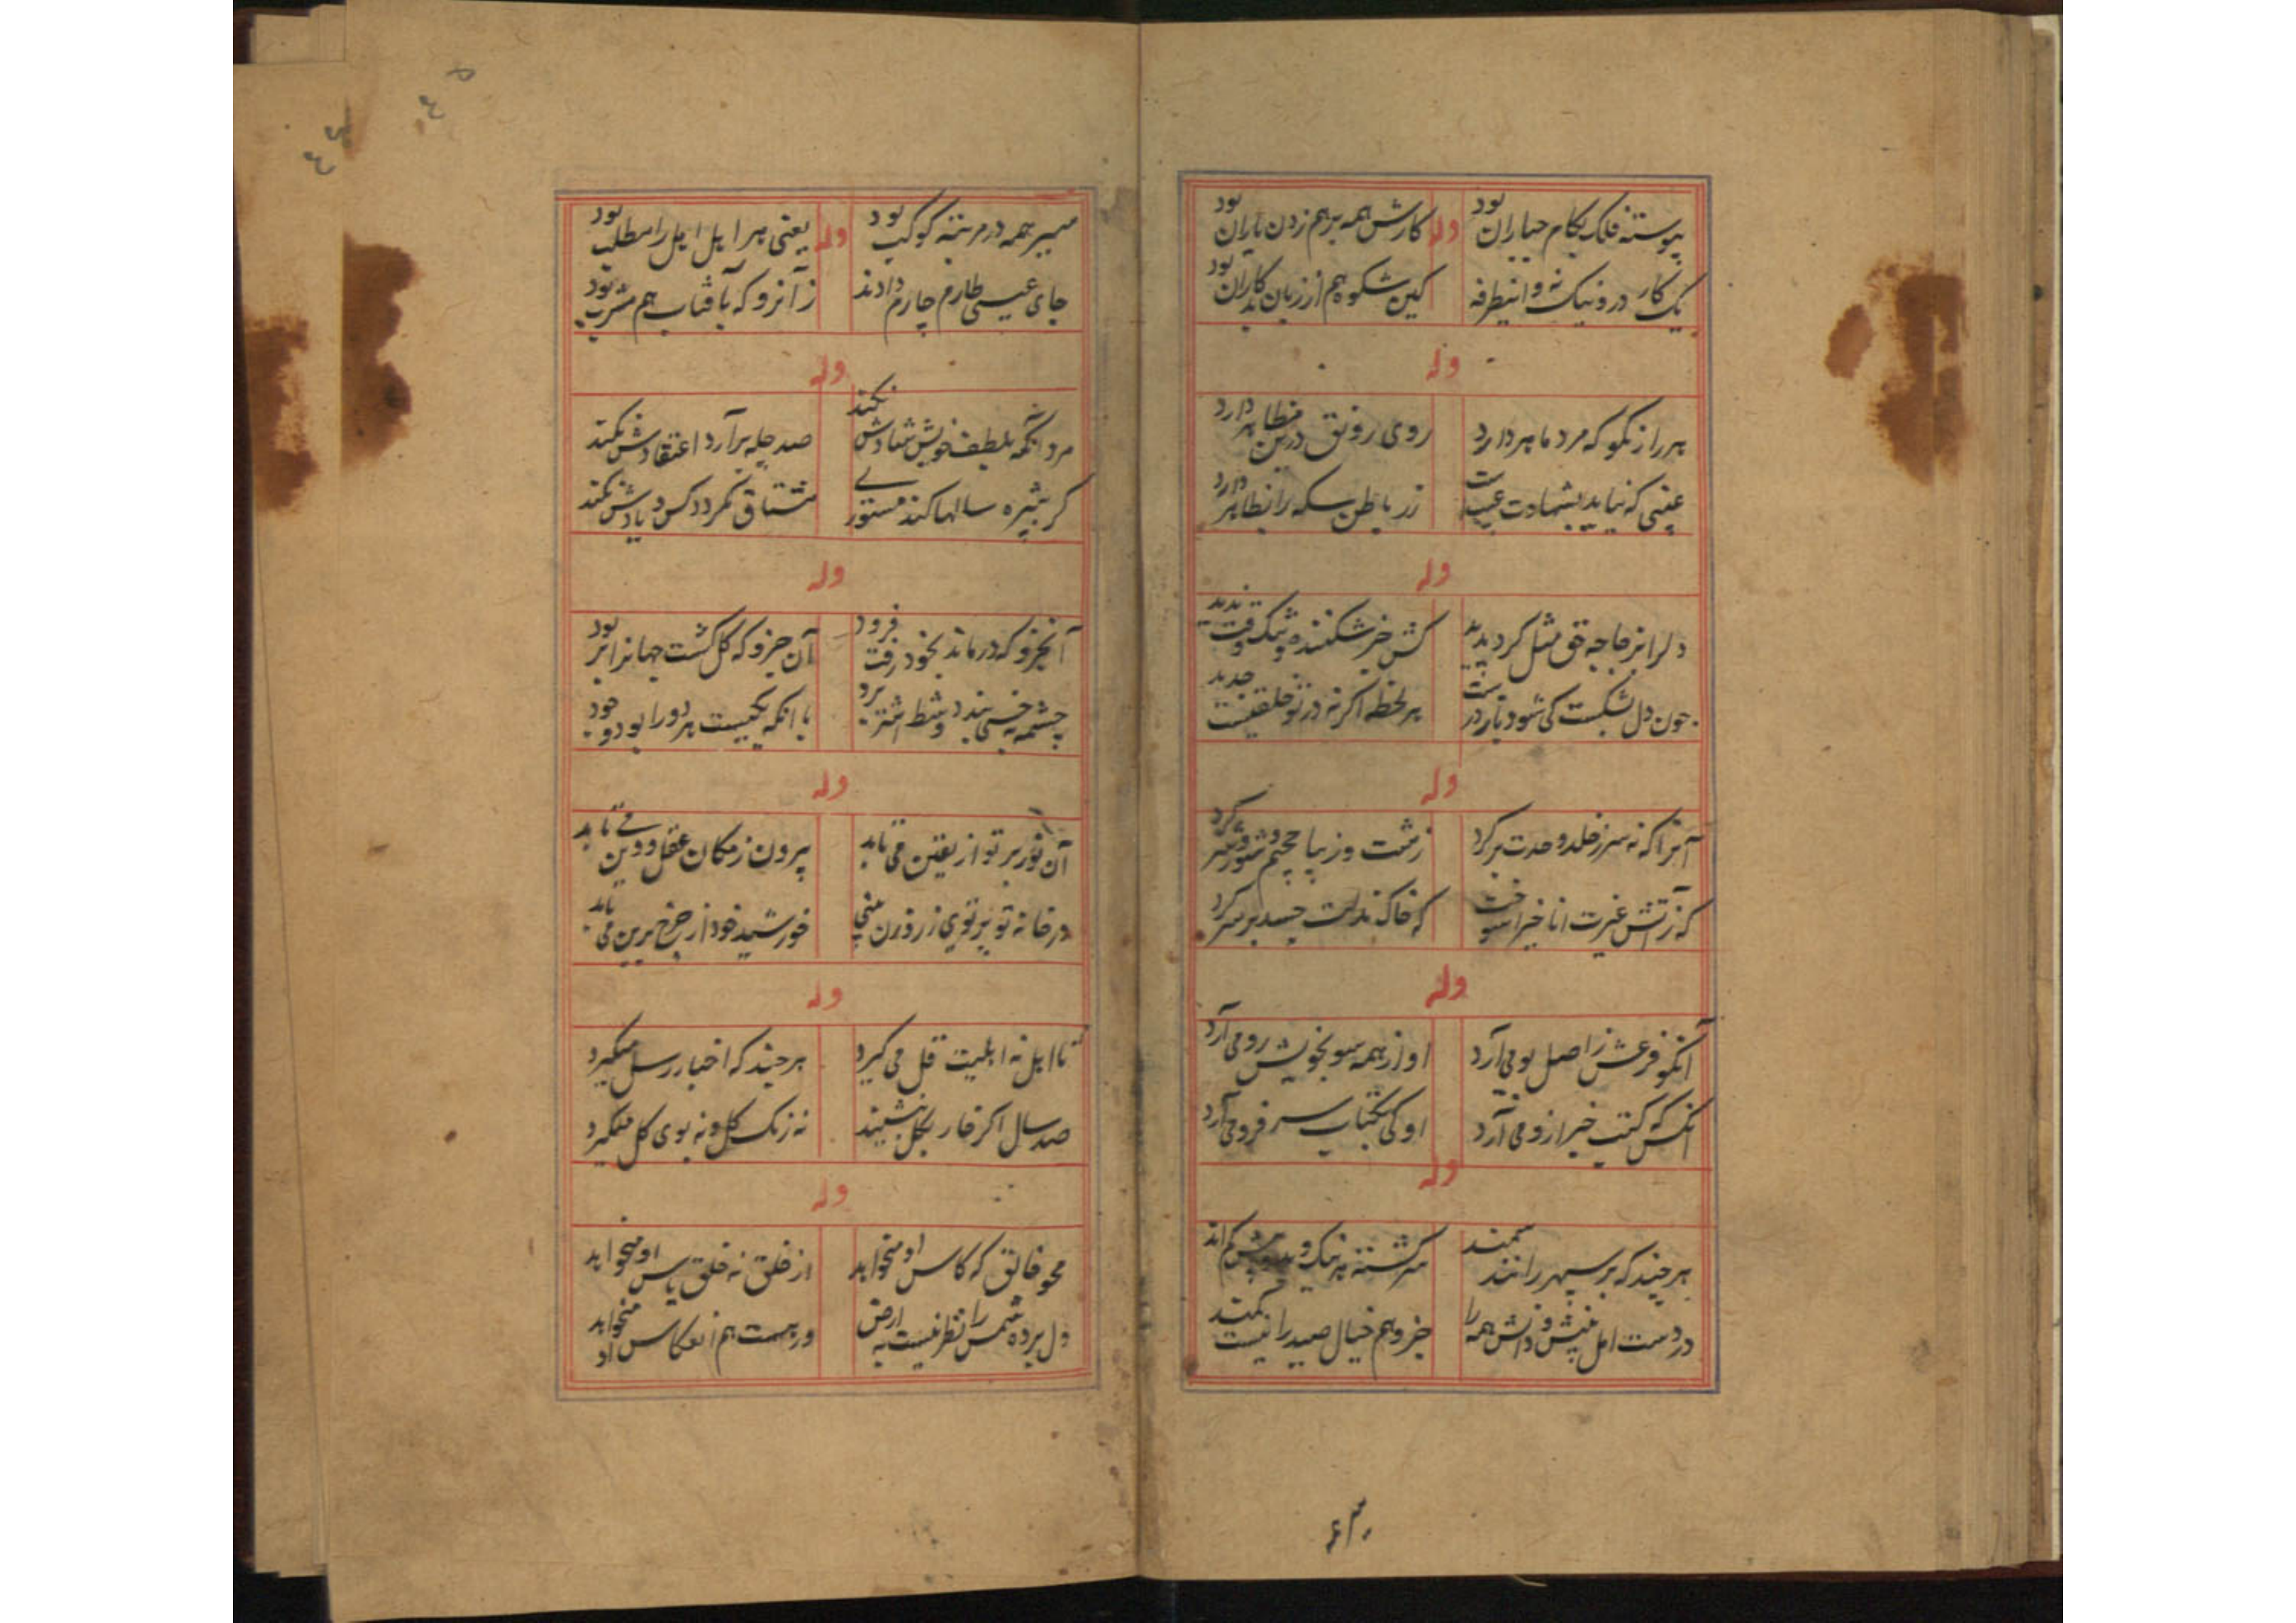 پیوسته فلک بکام عیاران بود وله کارش همه بر هم زدن یاران بود
یک کار درو نیک نه و اینطرفه کین شکوه هم از زبان بدکاران بود
وله
هر راز نکو که مرد ماهر دارد روی رونق درین مظاهر دارد
غیبی که نیاید بشهادت عیبست زر باطن سکه را بظاهر دارد
وله
دل را بزجاجه حق مثل کرد پدید کش جز شکنند
چون دل بشکست کی شود باز درست هر لحظه اگر نه در تو خلقیست جدید
وله
آنرا که نه سر ز خلد وحدت بر کرد زشت و زیبا جحیم شور و شر کرد
کز آتش غیرت انا خیرا سوخت که خاک مذلت حسد بر سر کرد
وله
آنکو فرعش ز اصل بو می آرد او از همه سو بخویش رو می آرد
آنکس که کتب خبر ازو می آرد او کی بکتاب سر فرو می آرد
وله
هر چند که بر سپهر رانند سمند سرگشته نیک و بد
در دست اهل بینش و دانش همه را جز وهم خیال صید را نیست کمند
۴۳
سیر همه در مرتبه کوکب بود وله یعنی هر اهل اهل را مطلب بود
جای عیسی طارم چارم دادند زآنرو که بآفتاب هم مشرب بود
وله
مرد آنکه بلطف خویش شادش نکند صد چله برآرد اعتقادش نکند
گر شپره سالها کند مستوری مشتاق نگردد کس و یادش نکند
وله
آن جزو که درماند بخود رفت فرود آن جزو که کل گشت جهانرا بر بود
چشمه خسی بند و شط اشتر برد با آنکه یکیست هر دو را بود و وجود
وله
آن نور بر تو از یقین می تابد بیرون ز مکان عقل و دین می تابد
در خانه تو پرتوی ز روزن بینی خورشید خود از چرخ برین می تابد
وله
نا اهل نه اهلیت قل می گیرد هر چند که اخبار رسل میگیرد
صد سال اگر خار بگل بنشیند نه رنگ گل و نه بوی گل میگیرد
وله
محو خالق که کاس او میخواهد از خلق نه خلق پاس او میخواهد
دل برده شمس را نظر نیست به ارض ور هست هم انعکاس او میخواهد